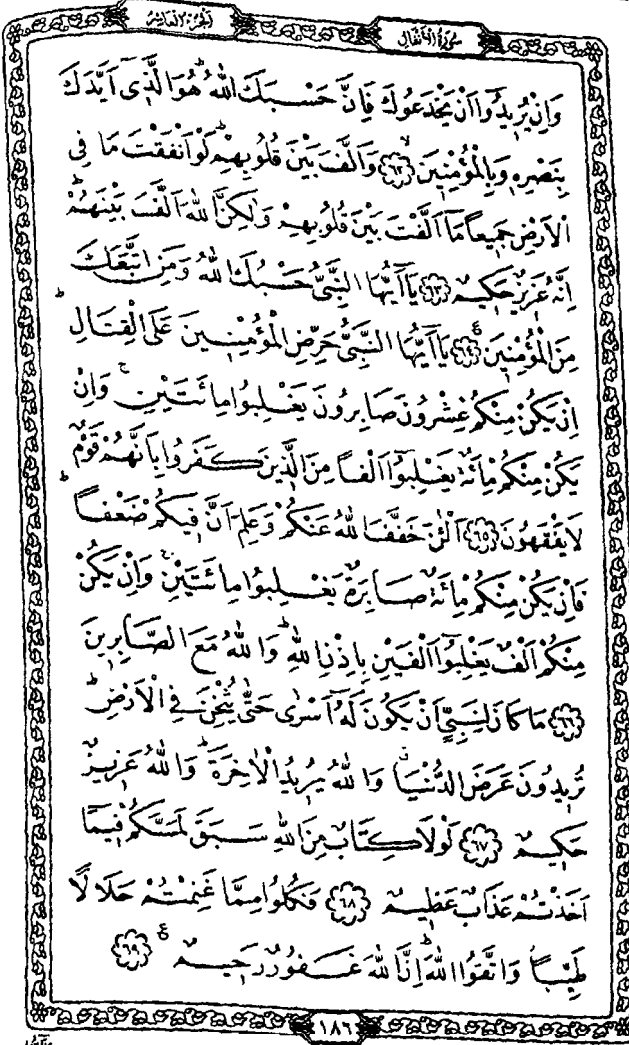 سُورَةُ الْاَنْفَالِ
اَلْجُزْءُ الْعَاشِرُ
وَاِنْ يُرِيدُٓوا اَنْ يَخْدَعُوكَ فَاِنَّ حَسْبَكَ اللّٰهُۜ هُوَ الَّذ۪ٓي اَيَّدَكَ
بِنَصْرِه۪ وَبِالْمُؤْمِن۪ينَۙ ﴿٦٢﴾ وَاَلَّفَ بَيْنَ قُلُوبِهِمْۜ لَوْ اَنْفَقْتَ مَا فِي
الْاَرْضِ جَم۪يعاً مَٓا اَلَّفْتَ بَيْنَ قُلُوبِهِمْ وَلٰكِنَّ اللّٰهَ اَلَّفَ بَيْنَهُمْۜ
اِنَّهُ عَز۪يزٌ حَك۪يمٌ ﴿٦٣﴾ يَٓا اَيُّهَا النَّبِيُّ حَسْبُكَ اللّٰهُ وَمَنِ اتَّبَعَكَ
مِنَ الْمُؤْمِن۪ينَ۟ ﴿٦٤﴾ يَٓا اَيُّهَا النَّبِيُّ حَرِّضِ الْمُؤْمِن۪ينَ عَلَى الْقِتَالِۜ
اِنْ يَكُنْ مِنْكُمْ عِشْرُونَ صَابِرُونَ يَغْلِبُوا مِائَتَيْنِۚ وَاِنْ
يَكُنْ مِنْكُمْ مِائَةٌ يَغْلِبُٓوا اَلْفاً مِنَ الَّذ۪ينَ كَفَرُوا بِاَنَّهُمْ قَوْمٌ
لَا يَفْقَهُونَ ﴿٦٥﴾ اَلْـٰٔنَ خَفَّفَ اللّٰهُ عَنْكُمْ وَعَلِمَ اَنَّ ف۪يكُمْ ضَعْفاًۜ
فَاِنْ يَكُنْ مِنْكُمْ مِائَةٌ صَابِرَةٌ يَغْلِبُوا مِائَتَيْنِۚ وَاِنْ يَكُنْ
مِنْكُمْ اَلْفٌ يَغْلِبُٓوا اَلْفَيْنِ بِاِذْنِ اللّٰهِۜ وَاللّٰهُ مَعَ الصَّابِر۪ينَ
﴿٦٦﴾ مَا كَانَ لِنَبِيٍّ اَنْ يَكُونَ لَهُٓ اَسْرٰى حَتّٰى يُثْخِنَ فِي الْاَرْضِۜ
تُر۪يدُونَ عَرَضَ الدُّنْيَاۗ وَاللّٰهُ يُر۪يدُ الْاٰخِرَةَۜ وَاللّٰهُ عَز۪يزٌ
حَك۪يمٌ ﴿٦٧﴾ لَوْلَا كِتَابٌ مِنَ اللّٰهِ سَبَقَ لَمَسَّكُمْ ف۪يمَٓا
اَخَذْتُمْ عَذَابٌ عَظ۪يمٌ ﴿٦٨﴾ فَكُلُوا مِمَّا غَنِمْتُمْ حَلَالاً
طَيِّباًۘ وَاتَّقُوا اللّٰهَۜ اِنَّ اللّٰهَ غَفُورٌ رَح۪يمٌ۟ ﴿٦٩﴾
١٨٦